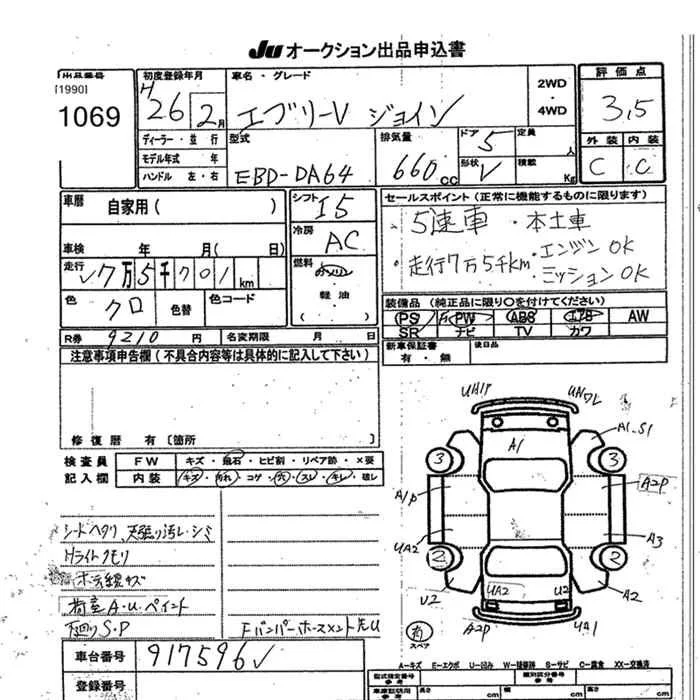 JU オークション出品申込書
出品番号
[1990]
1069
初度登録年月
H
26 2月
車名・グレード
エブリーV ジョイン
2WD
・
4WD
評価点
3.5
外装 内装
C C
ディーラー・並行
モデル年式 年
ハンドル 左・右
型式
EBD-DA64
排気量
660 cc
ドア 5
形状 V
定員 人
積載 Kg
車歴 自家用( )
シフト I5
冷房 AC
車検 年 月( 日)
走行 7万5千701km
燃料
ガソリン
・
軽油
・
( )
色 クロ 色替 色コード
R券 9210 円 名変期限 月 日
セールスポイント (正常に機能するものに限ります)
・5速車 ・本土車
・走行7万5千km ・エンジンOK
・ミッションOK
装備品 (純正品に限り○を付けてください)
PS PW ABS エアB AW
SR ナビ TV カワ
新車保証書
有・無
後日品
注意事項申告欄 (不具合内容等は具体的に記入して下さい)
修復歴 有 [箇所 ]
検査員
記入欄
FW キズ・飛石・ヒビ割・リペア跡・×要
内装 キズ・汚れ・コゲ・穴・スレ・キレ・破レ
シートヘタリ、天張り汚レ・シミ
Hライトクモリ
ボデ線キズ
荷室A・U・ペイント
下廻りS・P
Fバンパーホースメント先U
UA1P
UAワレ
A1
A1.S1
3
3
A1P
A2P
UA2
A3
2
2
U2
UA2
U2
A2
A2P
UA1
有
スペア
車台番号 917596
登録番号
A-キズ E-エクボ U-凹み W-補修跡 S-サビ C-腐食 XX-交換済
型式指定番号
参考
類別区分番号
参考
長さ cm
高さ cm
cm